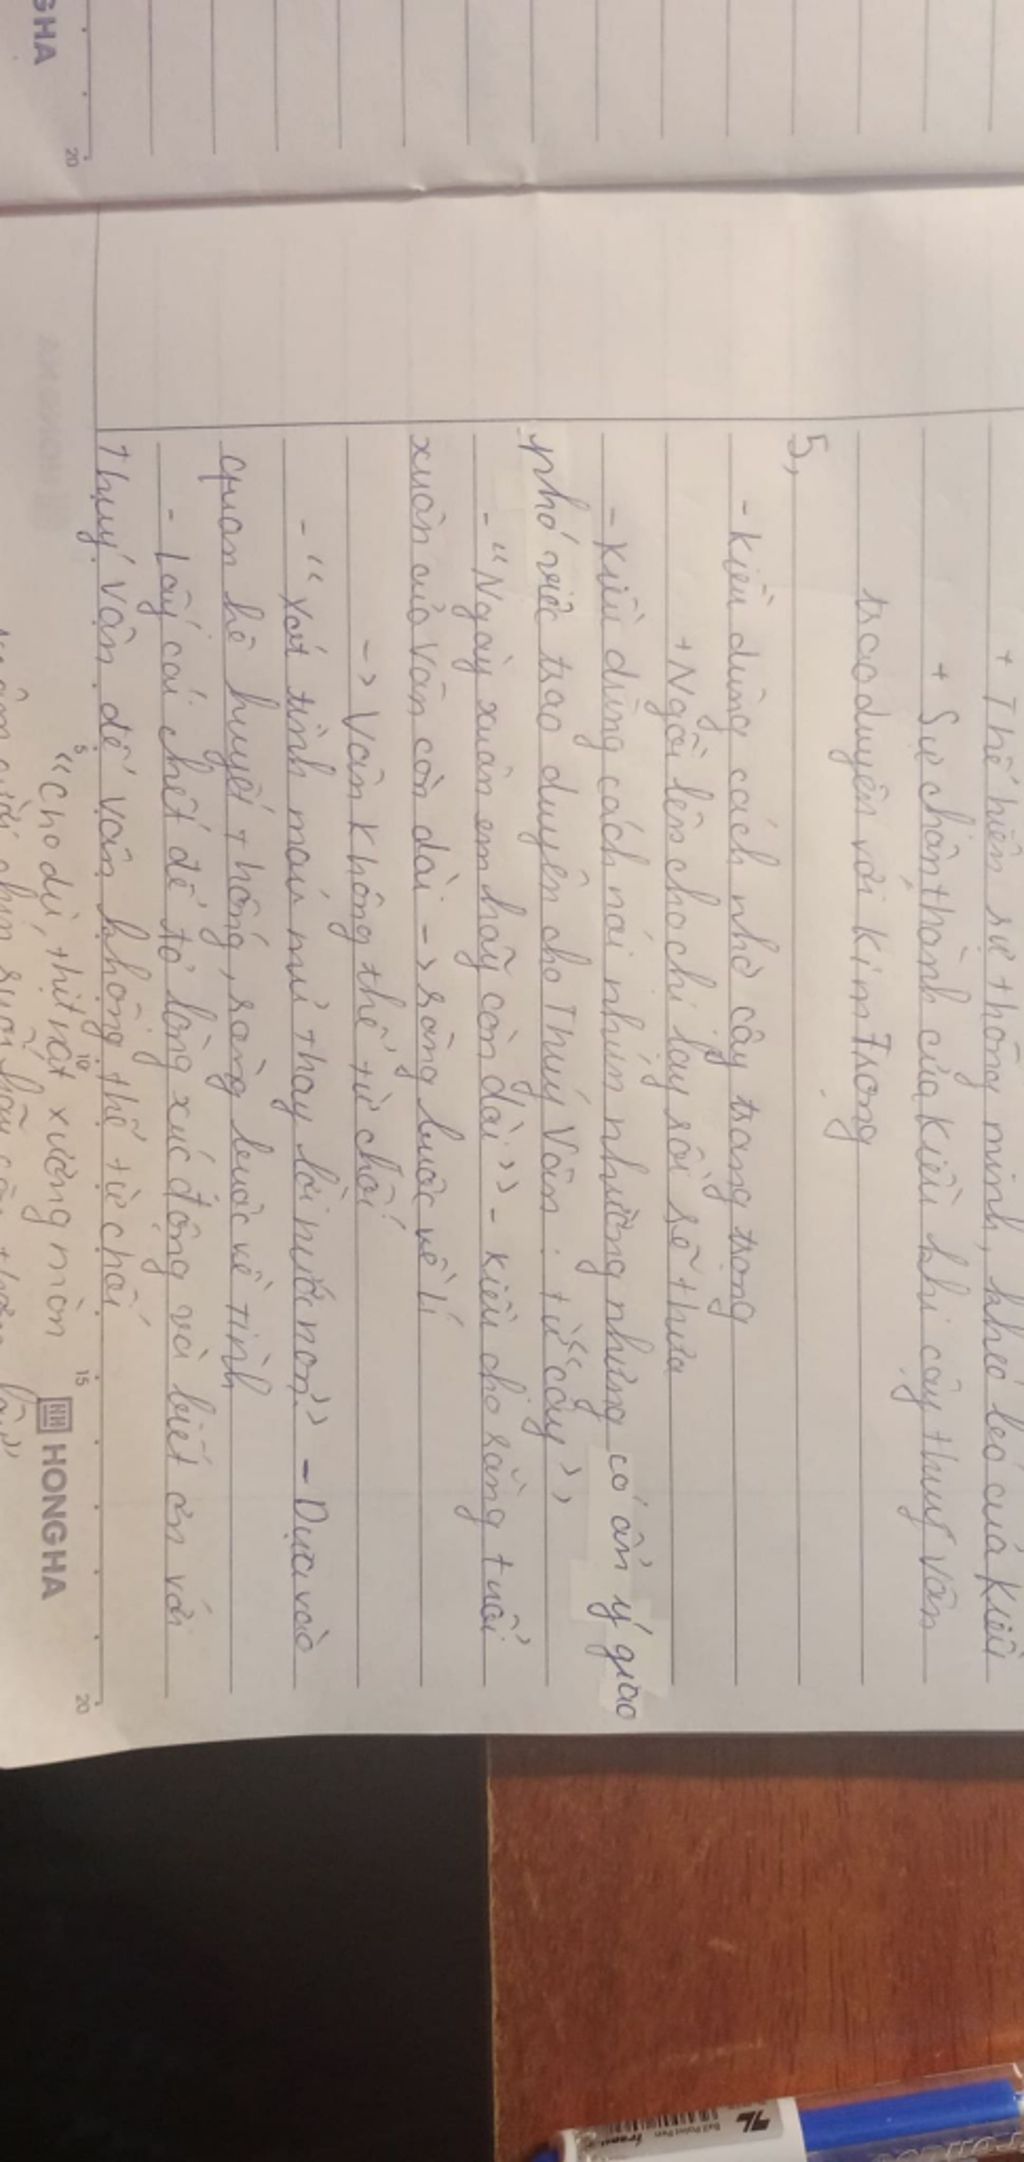 + Thể hiện sự thông minh, khéo léo của Kiều
+ Sự chân thành của Kiều khi cậy thuý vân
trao duyên với Kim Trọng
5,
- Kiều dùng cách nhờ cậy trang trọng
+ Ngồi lên cho chị lạy rồi sẽ thưa
- Kiều dùng cách nói nhún nhường nhưng có ẩn ý giao
phó việc trao duyên cho Thuý Vân : từ "cậy"
- "Ngày xuân em hãy còn dài" - Kiều cho rằng tuổi
xuân của Vân còn dài -> ràng buộc về lí
-> Vân không thể từ chối
- "Xót tình máu mủ thay lời nước non" - Dựa vào
quan hệ huyết thống, ràng buộc về tình
- Lấy cái chết để tỏ lòng xúc động và biết ơn với
Thuý Vân để vân không thể từ chối
"Cho dù thịt nát xương mòn
chín suối hãy còn thơm lây"
GHA
20
5
10
15
HONGHA
20